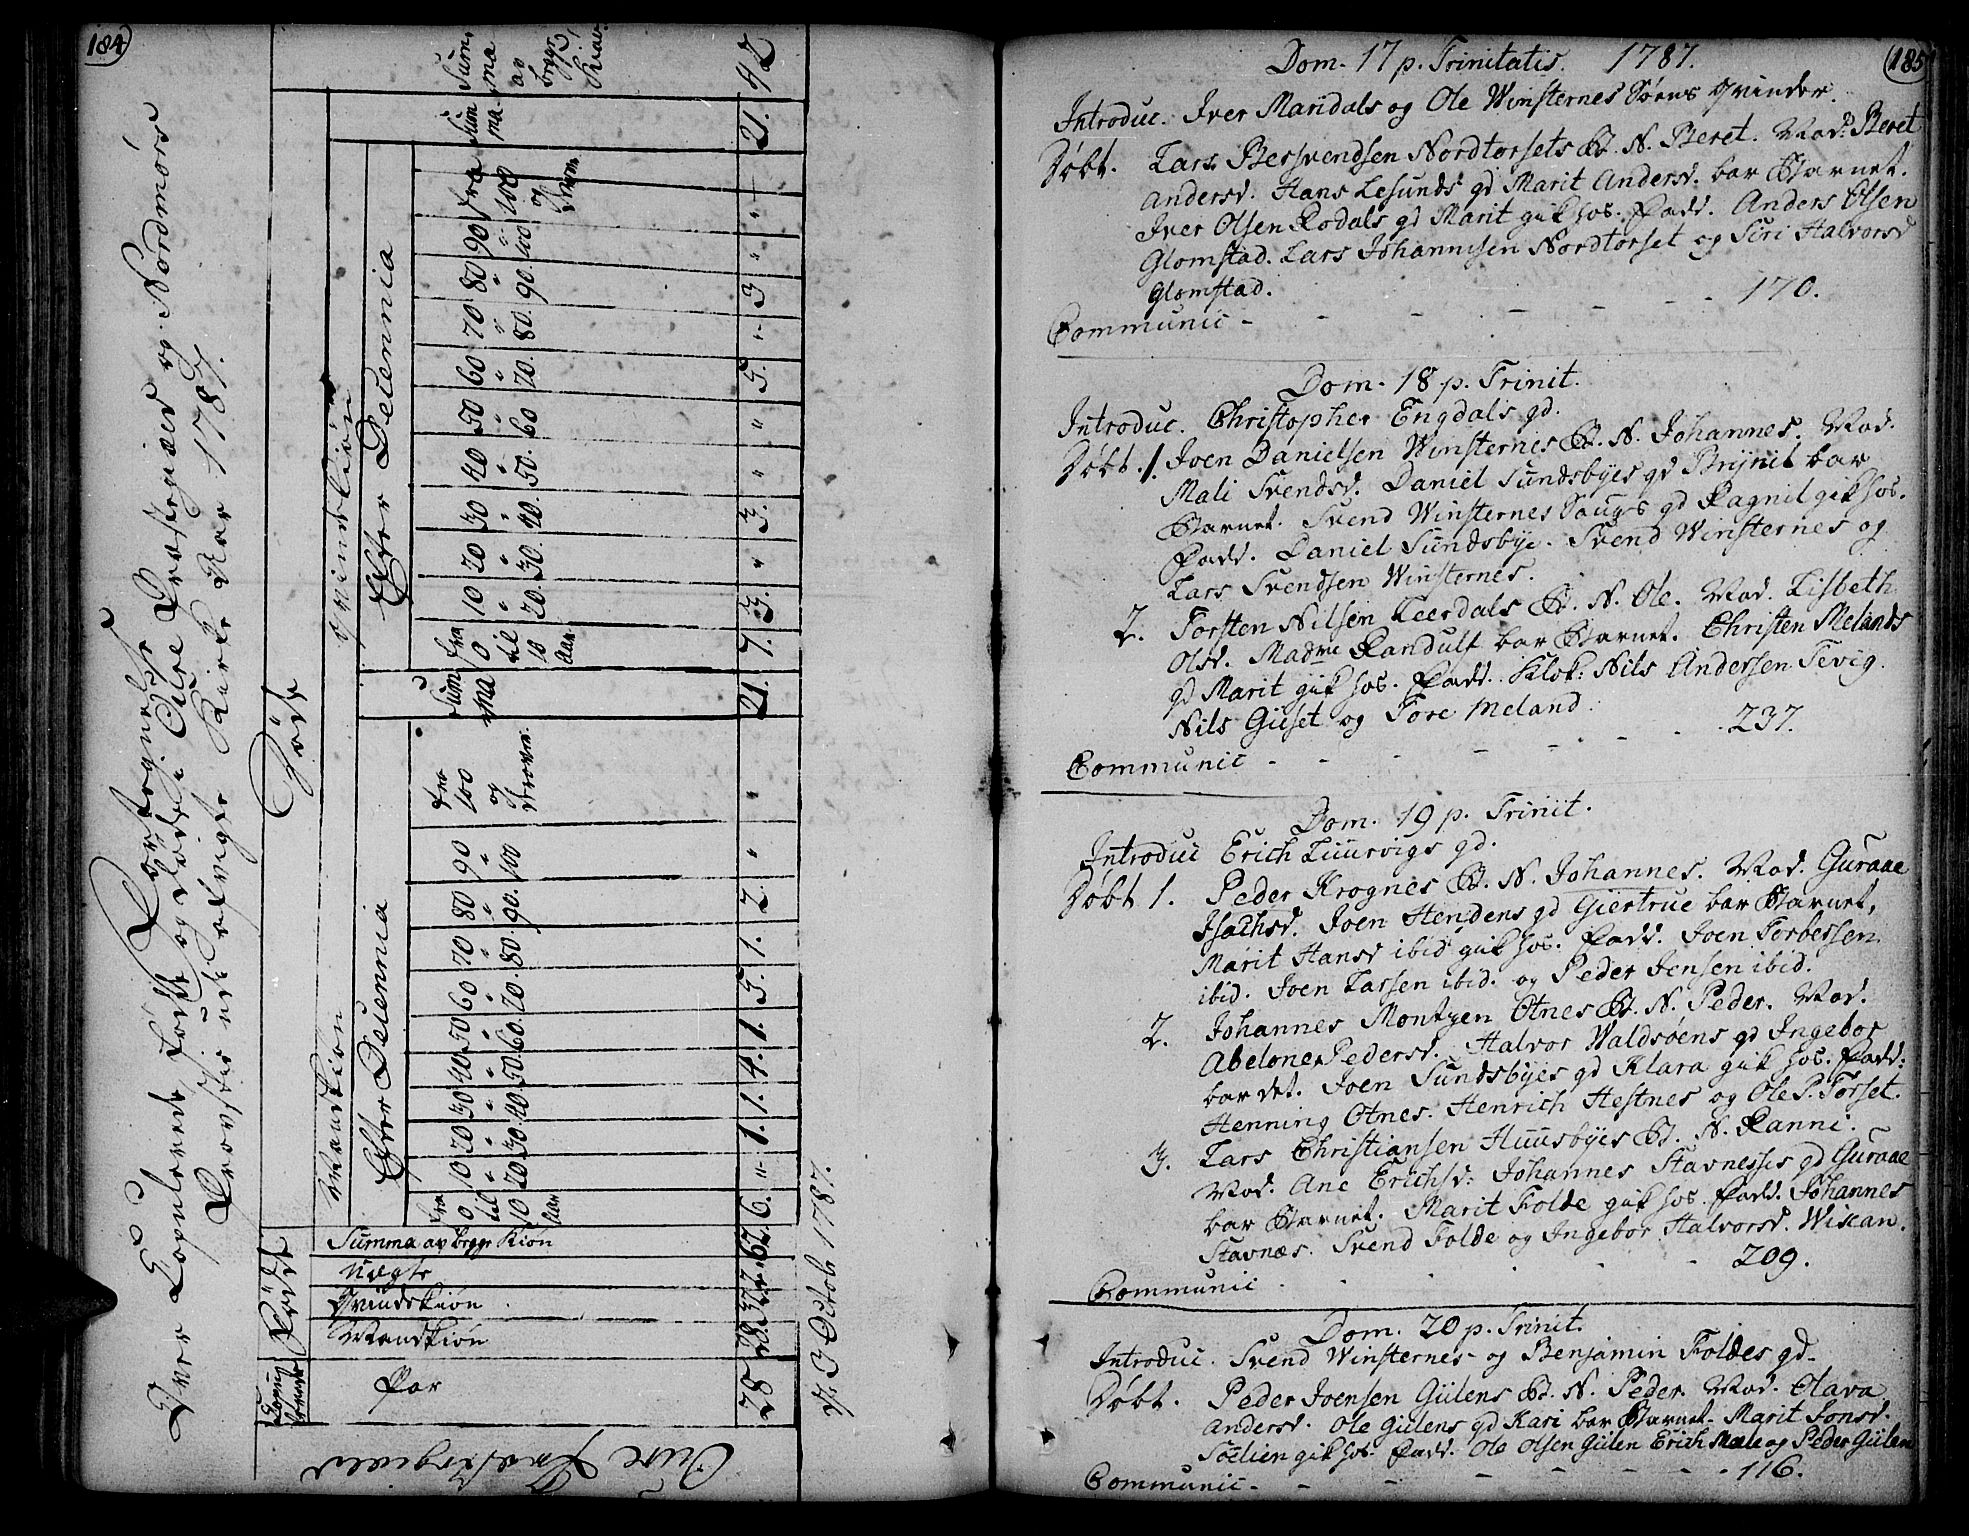 184
Fortegnelse
Over Copulerede fødte og døde i Øure Præstegield og Nordmørs
Provstie udi afvigte Kirke Aar 1787.
Døde
Mandkiøn
Qvindekiøn
Efter Deiennia
Efter Deiennia
Copulerede
Fødte
Par
Mandkiøn
Qvindekiøn
Uægte
Summa av begge Kiøn
fra 0 til 10 Aar
10 " 20
20 " 30
30 " 40
40 " 50
50 " 60
60 " 70
70 " 80
80 " 90
90 " 100
fra 100 og derover
Summa
fra 0 til 10 Aar
10 " 20
20 " 30
30 " 40
40 " 50
50 " 60
60 " 70
70 " 80
80 " 90
90 " 100
fra 100 og derover
Summa
Summa av begge Kiøn
Øure Præstegield
28 6. " 1. 1. 4. 1. 5. 1. 2. " " 21. 7. 3. " 3. " " 5. " 3 " " 21. 42
d. 3 Octob. 1787.
185
Dom. 17 p. Trinitatis. 1787.
Introduc. Iver Maridals og Ole Winsternes Søens Qvinder.
Døbt. Lars Bersvendsen Nordtorsets B. N. Beret. Mod. Beret
Andersd. Hans Lesunds gd Marit Andersd. bar Barnet.
Iver Olsen Rodals gd Marit gik hos. Fadd. Anders Olsen
Glomstad. Lars Johannesen Nordtorset og Siri Halvorsd
Glomstad.
Communic - - - - 170.
Dom. 18 p. Trinit.
Introduc. Christopher Engdals gd.
Døbt. 1. Joen Danielsen Winsternes B. N. Johannes. Mod.
Mali Svendsd. Daniel Sundsbyes gd Brynil bar
Barnet. Svend Winsternes Saugs gd Ragnil gik hos.
Fadd. Daniel Sundsbye. Svend Winsternes og
Lars Svendsen Winsternes.
2. Torsten Nilsen Leerdals B. N. Ole. Mod. Lisbeth
Olsd. Madme Randulf bar Barnet. Christen Melands
gd Marit gik hos. Fadd. Klok: Nils Andersen Tevig.
Nils Giiset og Tore Meland.
Communic - - - - 237.
Dom. 19 p. Trinit.
Introduc Erich Liiurvigs gd.
Døbt 1. Peder Krognes B. N. Johannes. Mod. Guraae
Isachsd. Joen Hendens gd Giertrue bar Barnet,
Marit Hansd ibid gik hos. Fadd. Joen Torbersen
ibid. Joen Larsen ibid. og Peder Jensen ibid.
2. Johannes Montzen Otnes B. N. Peder. Mod.
Abelone Pedersd. Halvor Waldsøens gd Ingebor
bar det. Joen Sundsbyes gd Klara gik hos. Fadd:
Henning Otnes. Henrich Hestnes og Ole P. Torset.
3. Lars Christiansen Huusbyes B. N. Ranni.
Mod. Ane Erichsd. Johannes Stavnesses gd Guraae
bar Barnet. Marit Folde gik hos. Fadd. Johannes
Stavnæs. Svend Folde og Ingebor Halvorsd. Wiкan.
Communic - - - - 209.
Dom. 20 p. Trinit.
Introduc. Svend Winsternes og Benjamin Foldes gd.
Døbt. Peder Joensen Gülens B. N. Peder. Mod. Olava
Andersd. Ole Gülens gd Kari bar Barnet. Marit Jonsd.
Søelien gik hos. Fadd. Ole Olsen Gülen Erich Mæle og Peder Gülen
Communic - - - - 116.